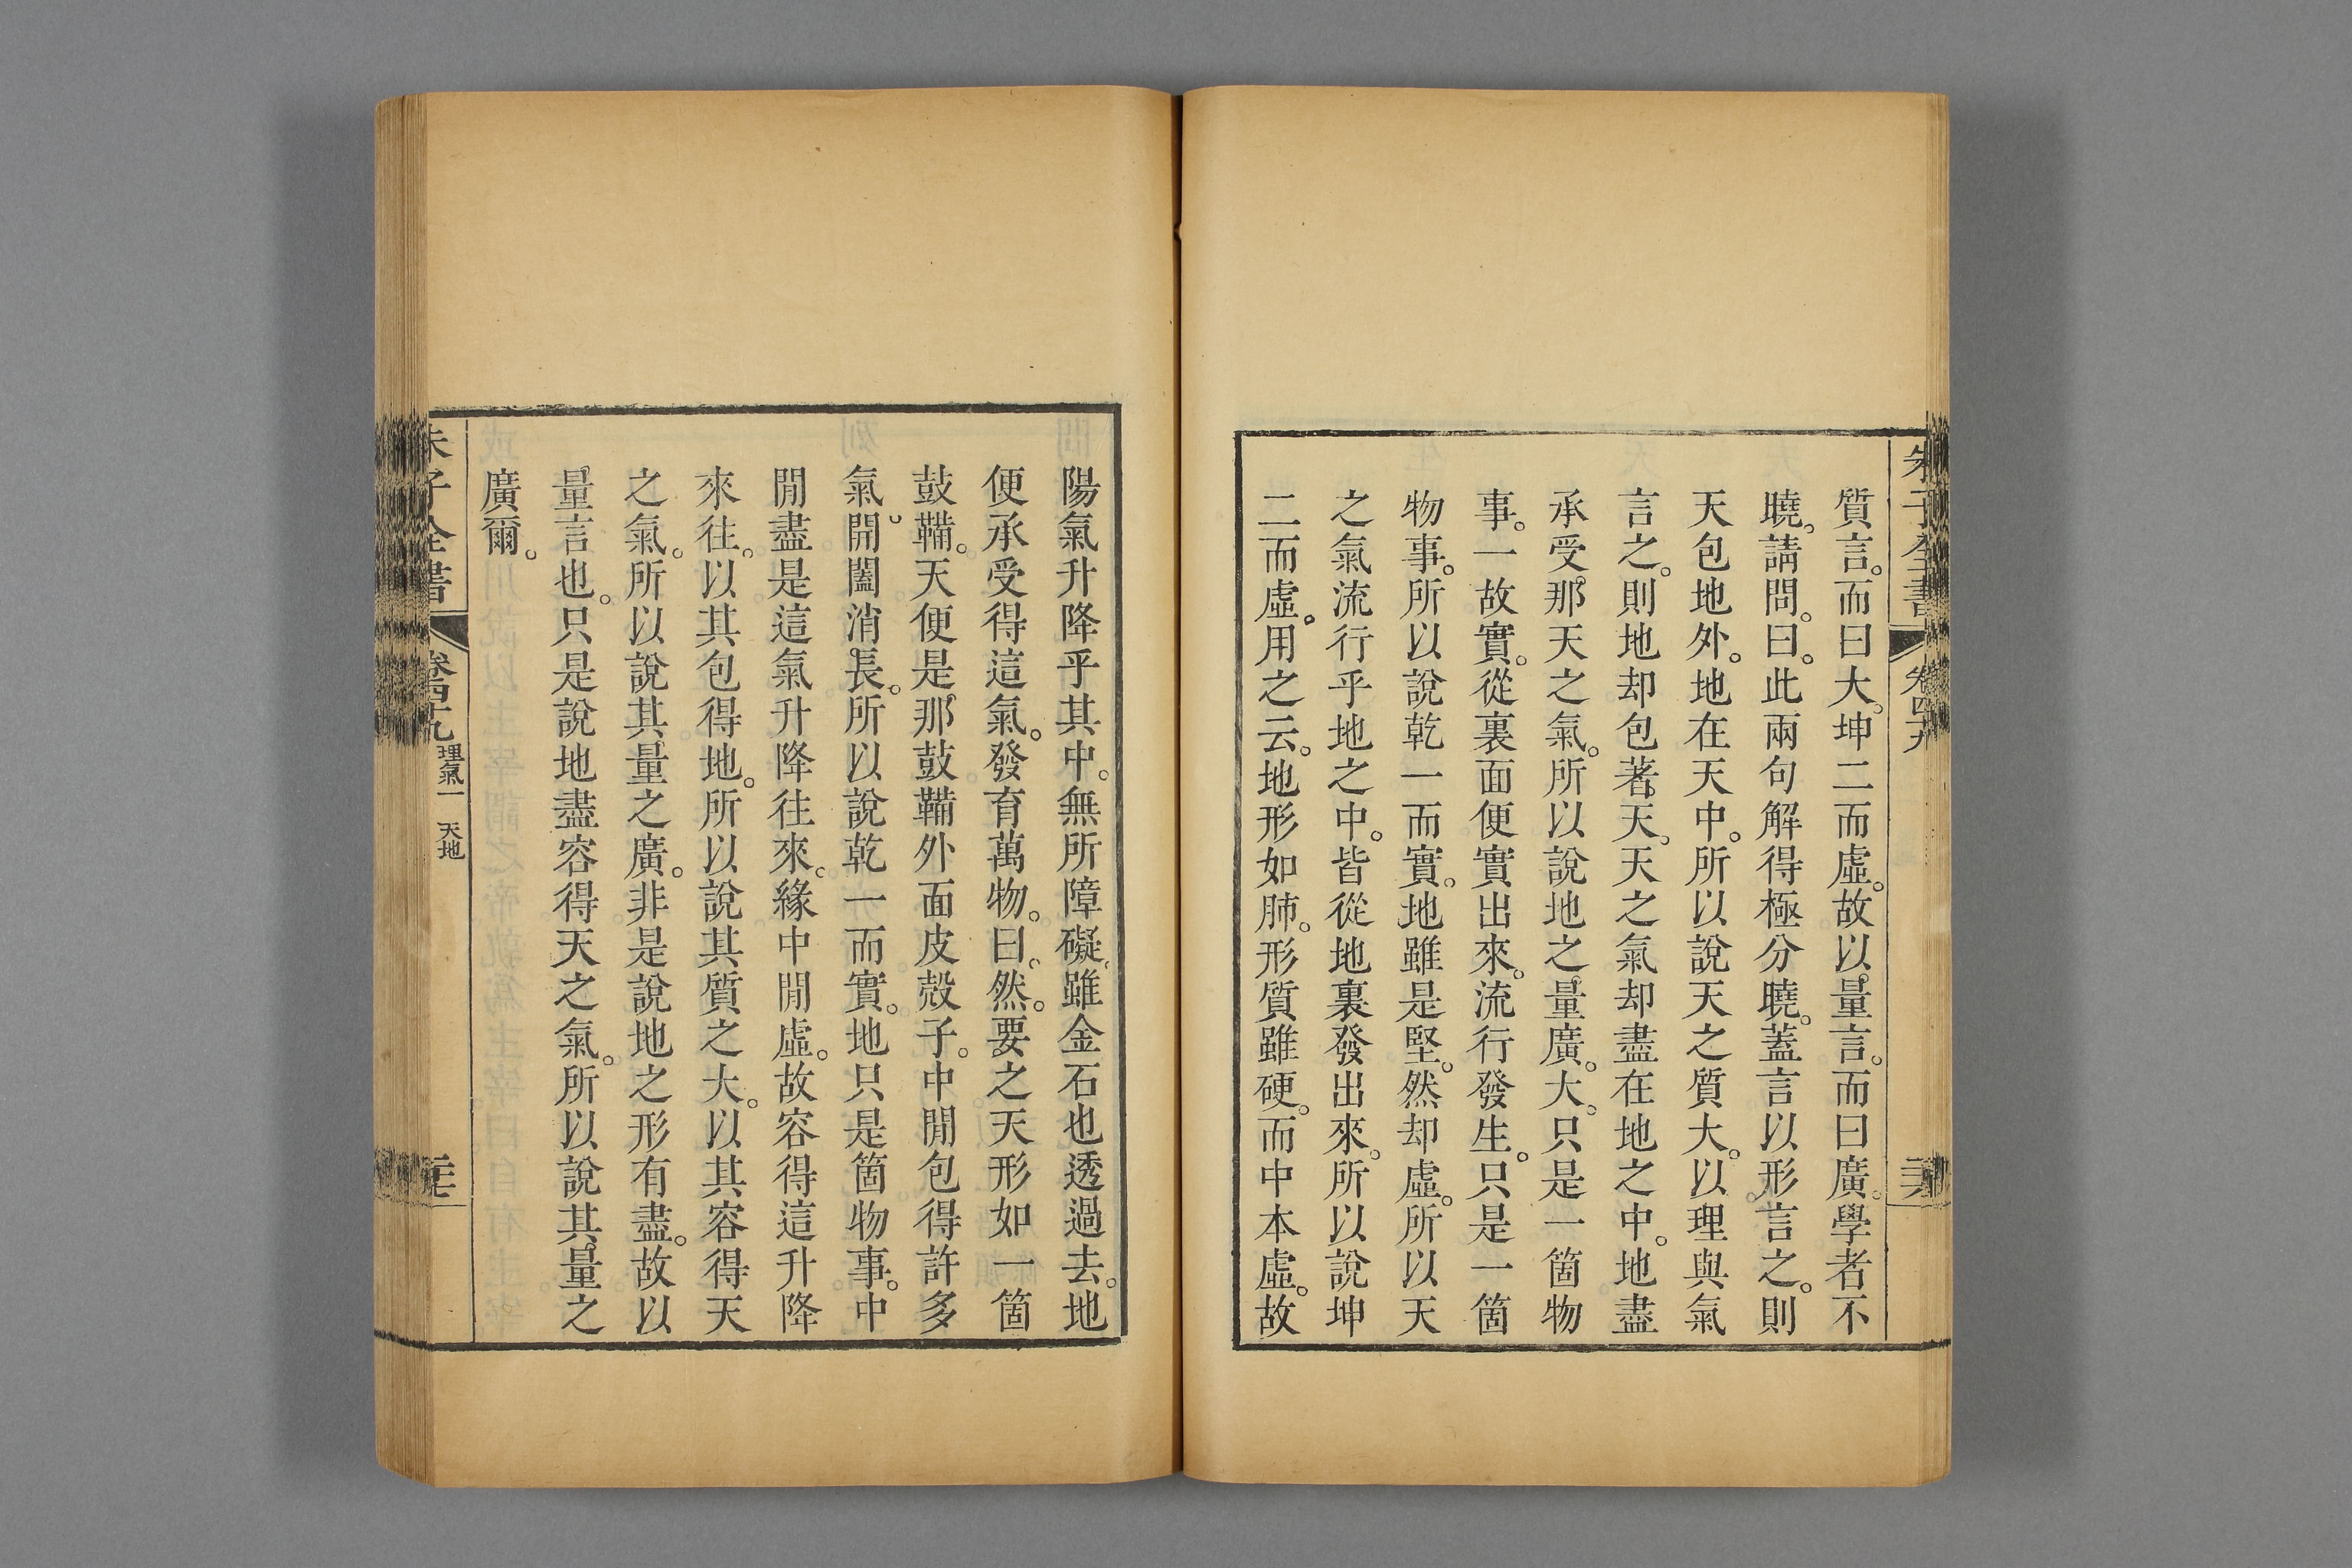 朱子全書 卷四十九
質言。而曰大。坤二而虛。故以量言。而曰廣。學者不
曉。請問。曰。此兩句解得極分曉。蓋言以形言之。則
天包地外。地在天中。所以說天之質大。以理與氣
言之。則地却包著天。天之氣却盡在地之中。地盡
承受那天之氣。所以說地之量廣。大。只是一箇物
事。一故實。從裏面便實出來。流行發生。只是一箇
物事。所以說乾一而實。地雖是堅。然却虛。所以天
之氣流行乎地之中。皆從地裏發出來。所以說坤
二而虛。用之云。地形如肺。形質雖硬。而中本虛。故
陽氣升降乎其中。無所障礙。雖金石也透過去。地
便承受得這氣。發育萬物。曰。然。要之天形如一箇
鼓鞴。天便是那鼓鞴外面皮殼子。中閒包得許多
氣。開闔消長。所以說乾一而實。地只是箇物事。中
閒盡是這氣升降往來。緣中閒虛。故容得這升降
來往。以其包得地。所以說其質之大。以其容得天
之氣。所以說其量之廣。非是說地之形有盡。故以
量言也。只是說地盡容得天之氣。所以說其量之
廣爾。
朱子全書 卷四十九 理氣一 天地